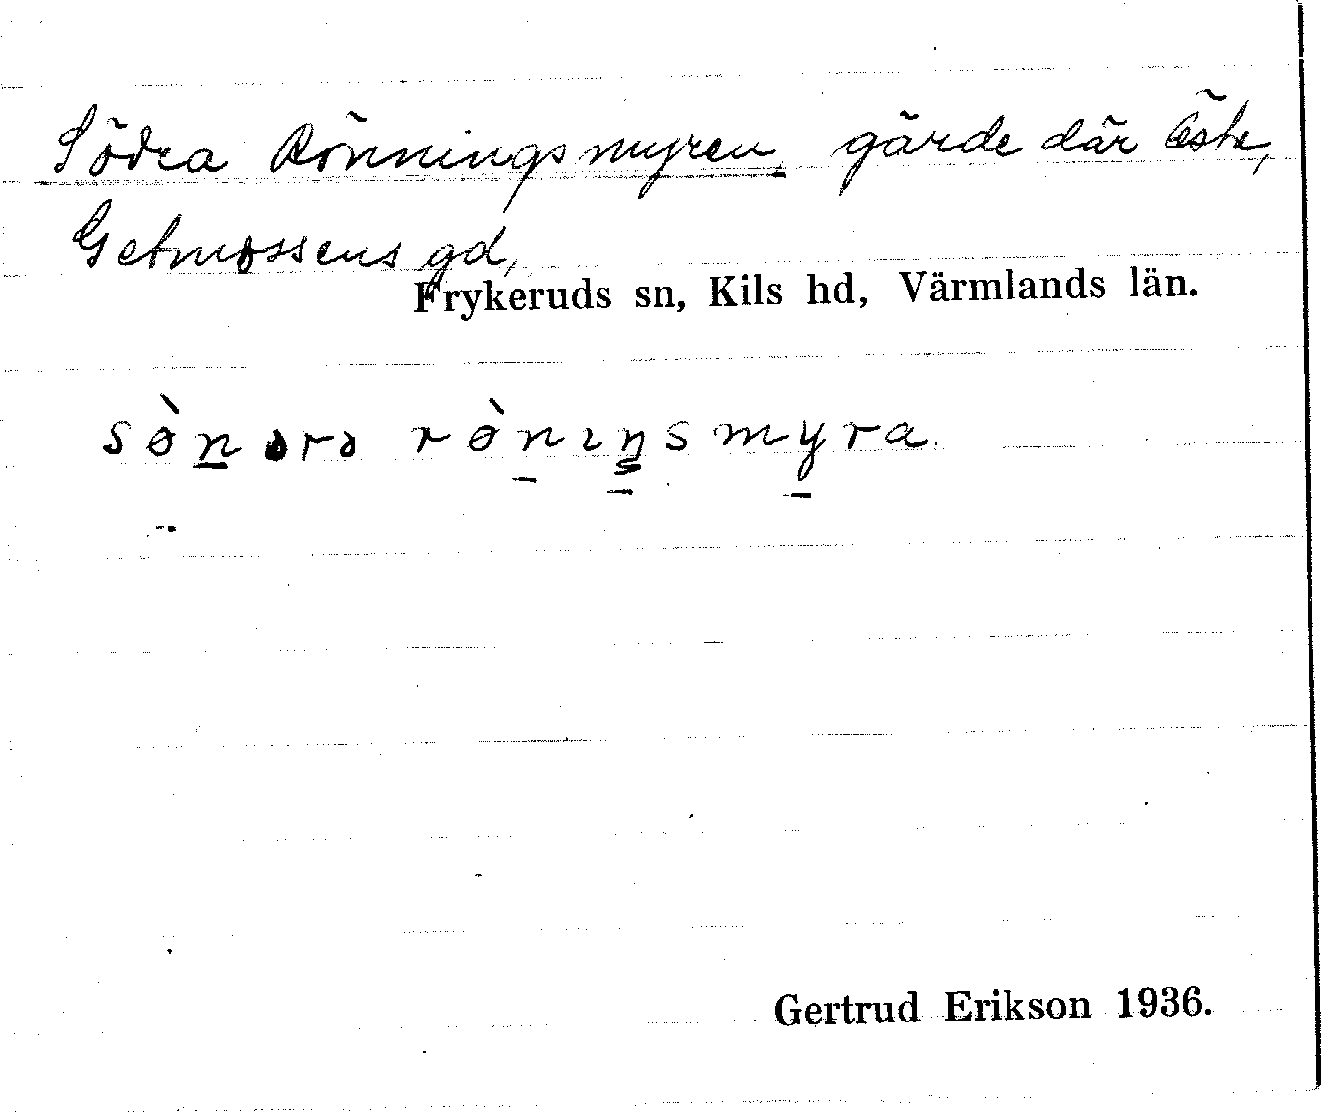 Södra Rönningsmyren gärde där
Getmossens gd,
Frykeruds sn, Kils hd, Värmlands län.
sø̀nərə rø̀nıŋsmyra.
Gertrud Erikson 1936.